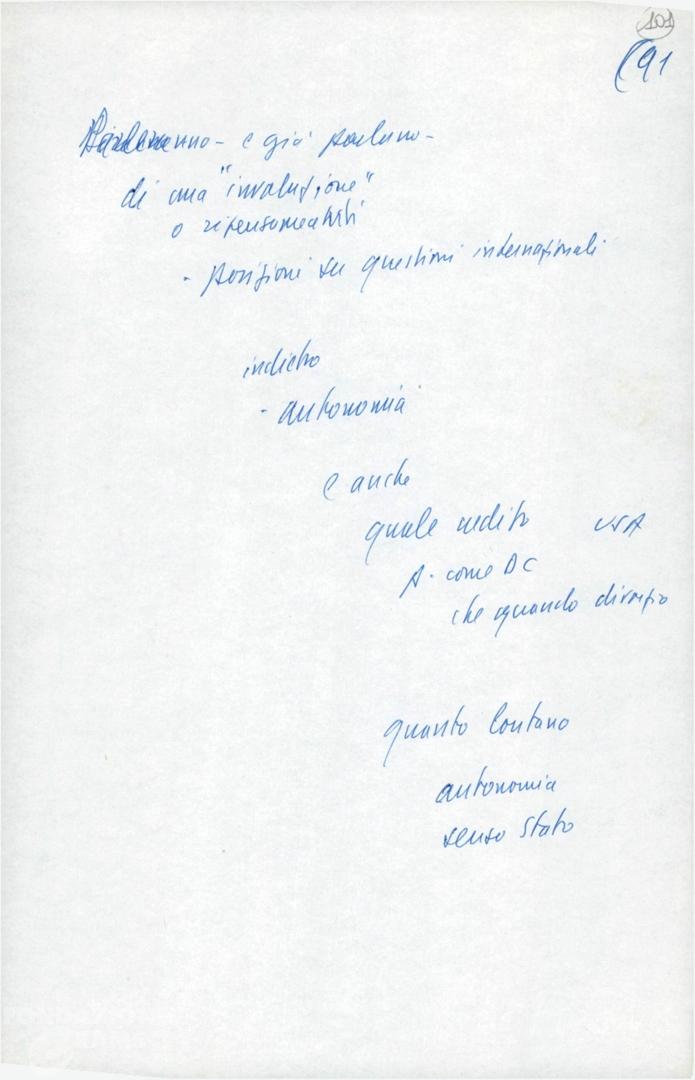 101
(91
Parleranno - e già parlano -
di una "involuzione"
o ripensamenti
- posizioni su questioni internazionali
indietro
- autonomia
e anche
quale credito USA
A. come DC
che quando divorzio
quanto lontano
autonomia
senso Stato